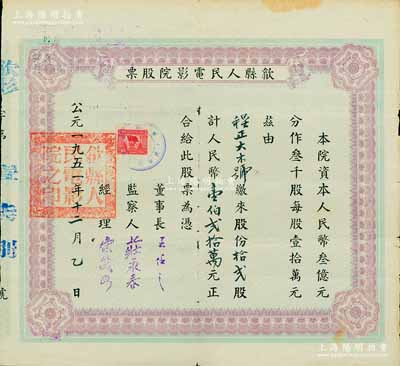 上海陽明拍賣
歙縣人民電影院股票
本院資本人民幣叁億元
分作叁千股每股壹拾萬元
茲由
程正大木號繳來股份拾弍股
計人民幣壹佰弍拾萬元正
合給此股票為憑
董事長
監察人
經理
公元一九五一年十二月乙日
歙縣人民電影院之印
號
上海陽明拍賣